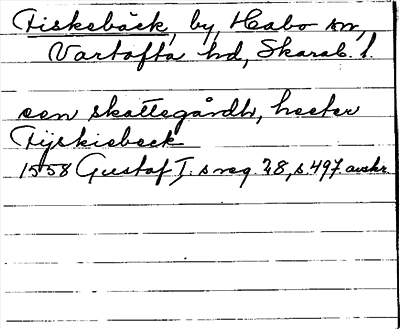 Fiskebäck, by, Habo sn,
Vartofta hd, Skarab. l.
een skattegårdh, heeter
Fijskiebeck
1558 Gustaf I.s reg. 28, s. 497. avskr.